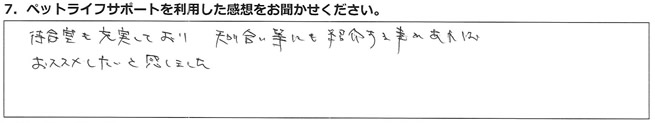 7．ペットライフサポートを利用した感想をお聞かせください。
待合室も充実しており 知り合い等にも紹介する事があれば
おススメしたいと感じました